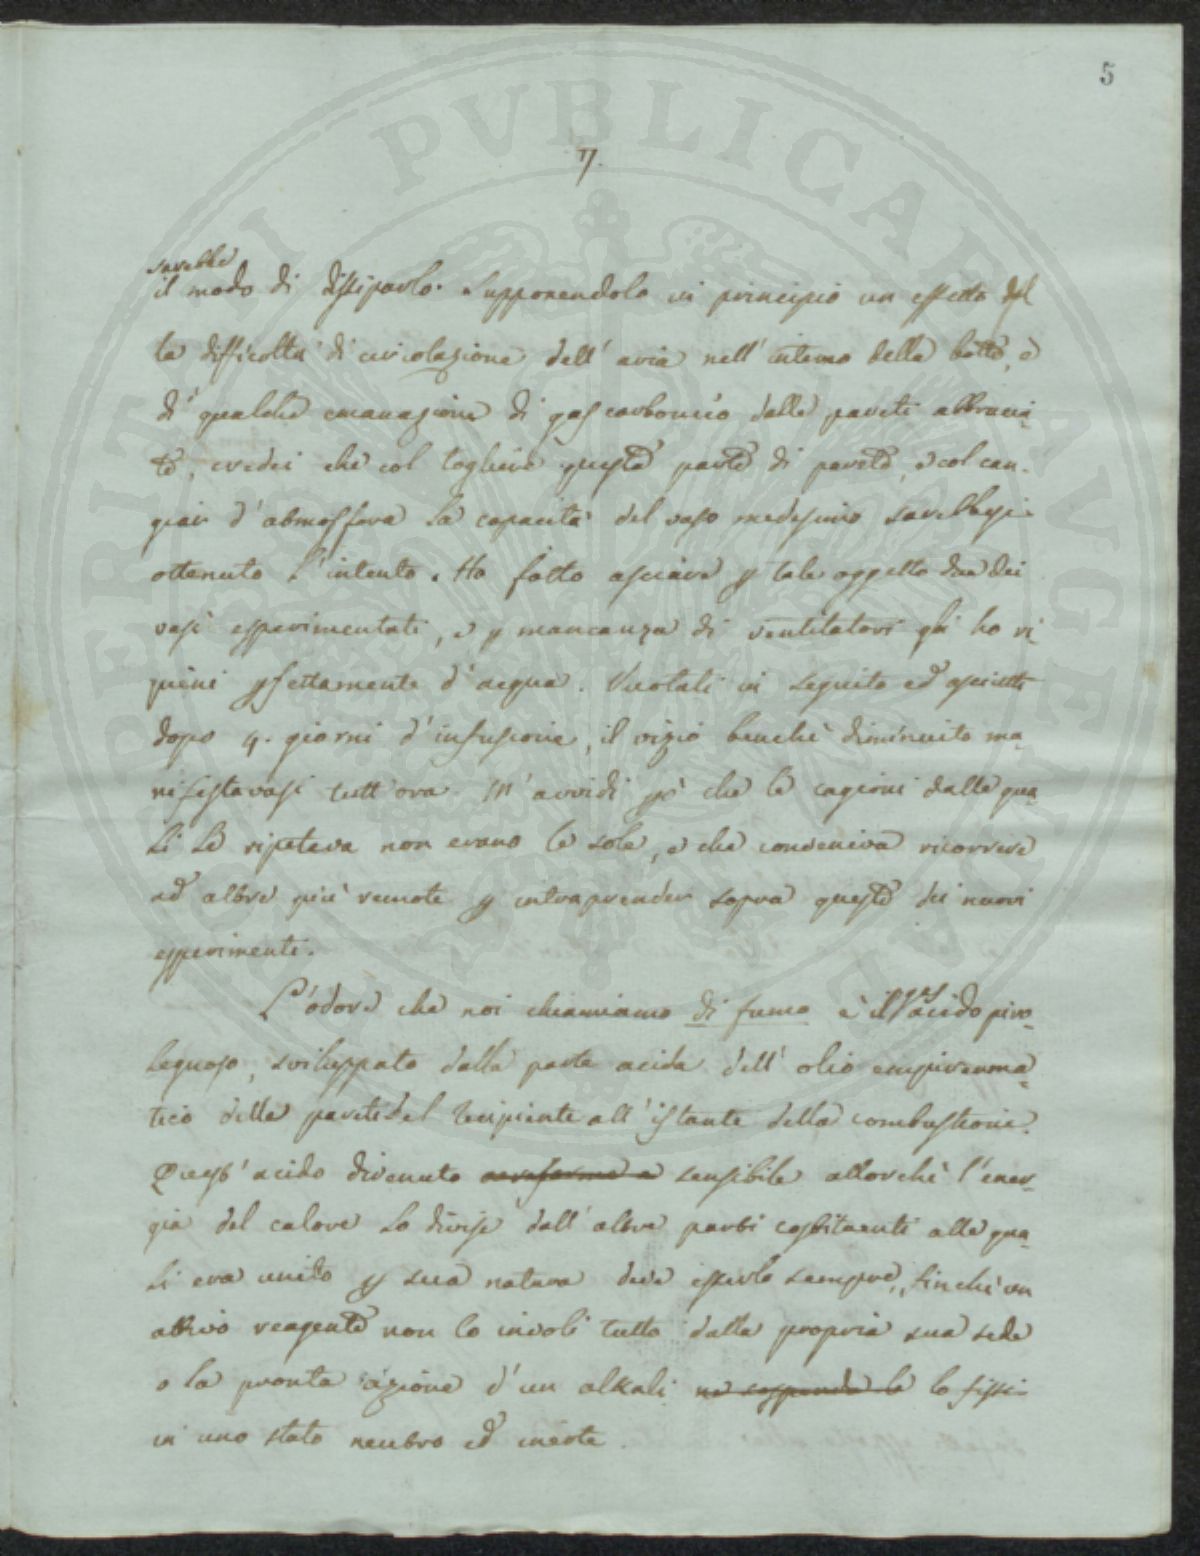 5
7.
sarebbe
il modo di dissiparlo. Supponendolo in principio un effetto del
la difficoltà di circolazione dell' aria nell' interno della botte, e
di qualche emanazione di gas carbonico dalle pareti abbrucia-
te, credei che col togliere queste parte di parete, e col can-
giar d' atmosfera la capacità del vaso medesimo sarebbesi
ottenuto l' intento. Ho fatto asciare p tale oggetto due dei
vasi esperimentati, e p mancanza di ventilatori gli ho ri-
pieni pfettamente d' acqua. Vuotati in seguito ed asciutti
dopo 4. giorni d' infusione, il vizio benchè diminuito ma-
nifestavasi tutt' ora. M' avvidi pò che le cagioni dalle qua-
li lo ripeteva non erano le sole, e che conveniva ricorrere
ad altre più remote p intraprender sopra queste dei nuovi
esperimenti.
L' odore che noi chiamiamo di fumo è il acido piro-
legnoso, sviluppato dalla parte acida dell' olio empireuma-
tico delle pareti del recipiente all' istante della combustione.
Quest' acido divenuto sensibile allorchè l' ener-
gia del calore lo divise dall' altre parti costituenti alle qua-
li era unito p sua natura deve esserlo sempre, finchè un
attivo reagente non lo involi tutto dalla propria sua sede
o la pronta azione d' un alkali ne sospenda le lo fissi
in uno stato neutro ed inerte.